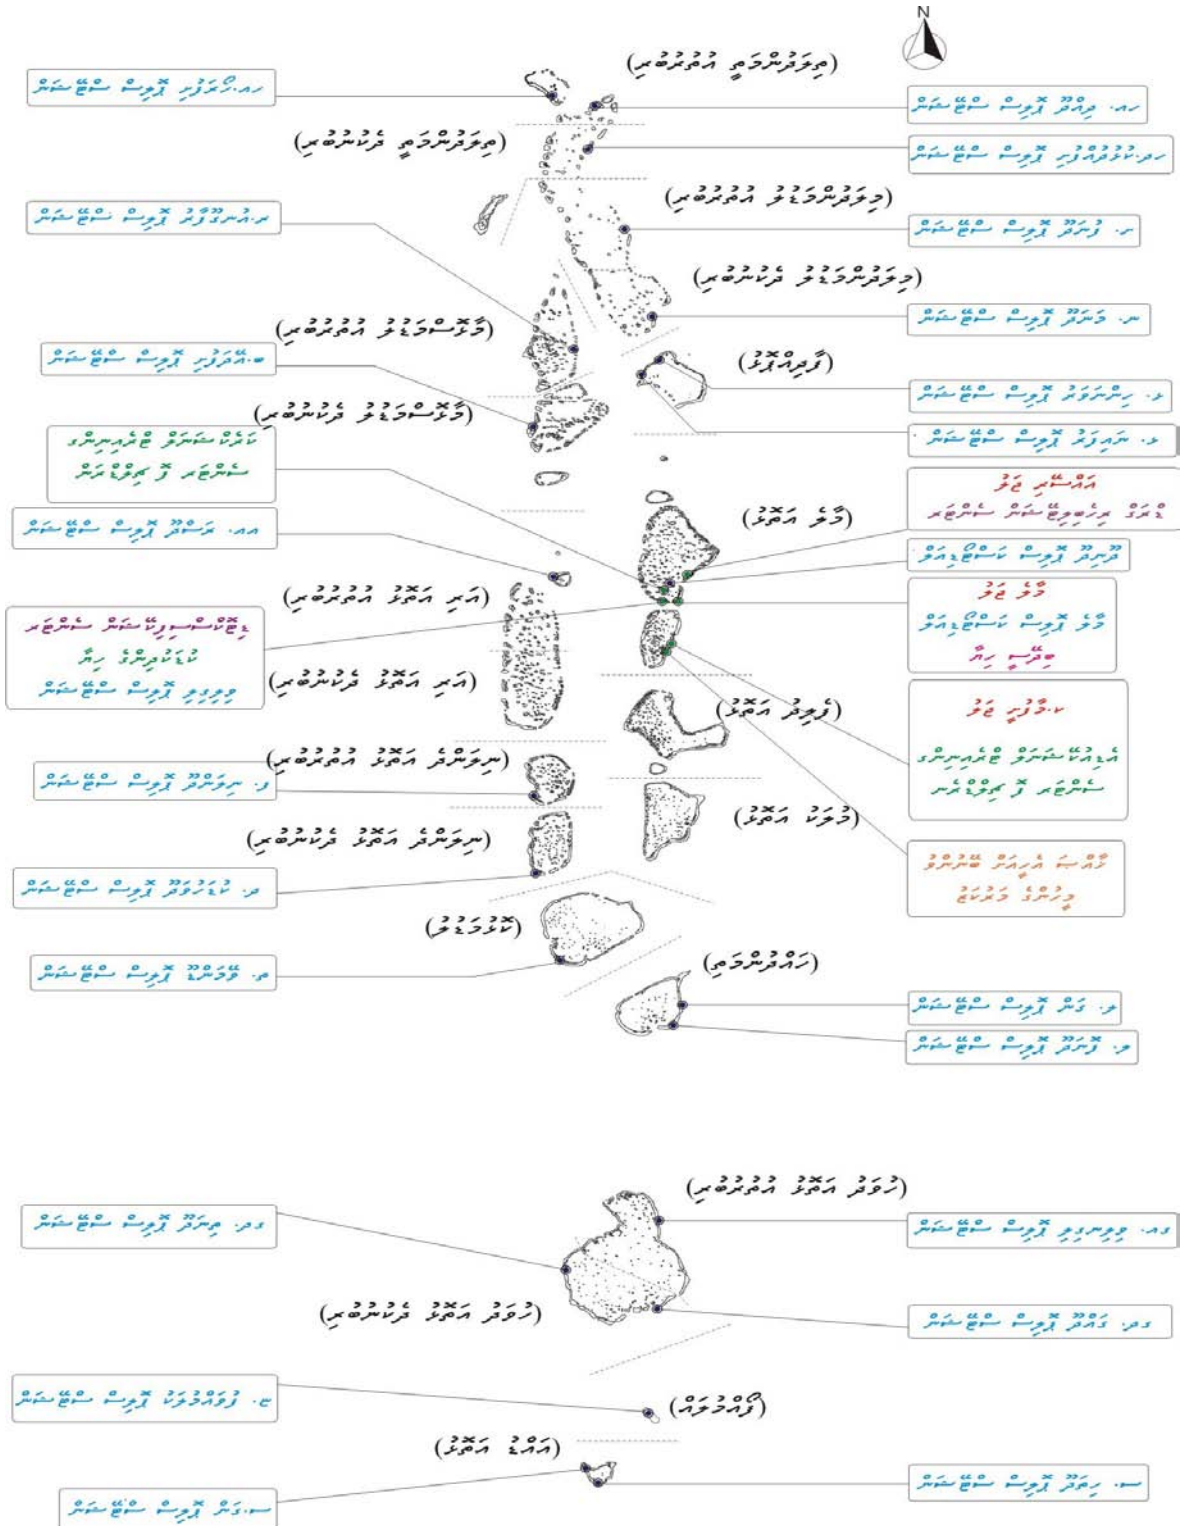 N
(ތިލަދުންމަތީ އުތުރުބުރި)
ހއ.ހޯރަފުށި ޕޮލިސް ސްޓޭޝަން
ހއ. ދިއްދޫ ޕޮލިސް ސްޓޭޝަން
(ތިލަދުންމަތީ ދެކުނުބުރި)
ހދ.ކުޅުދުއްފުށި ޕޮލިސް ސްޓޭޝަން
(މިލަދުންމަޑުލު އުތުރުބުރި)
ރ.އުނގޫފާރު ޕޮލިސް ސްޓޭޝަން
ށ. ފުނަދޫ ޕޮލިސް ސްޓޭޝަން
(މިލަދުންމަޑުލު ދެކުނުބުރި)
ނ. މަނަދޫ ޕޮލިސް ސްޓޭޝަން
(މާޅޮސްމަޑުލު އުތުރުބުރި)
ބ.އޭދަފުށި ޕޮލިސް ސްޓޭޝަން
(ފާދިއްޕޮޅު)
ޅ. ހިންނަވަރު ޕޮލިސް ސްޓޭޝަން
(މާޅޮސްމަޑުލު ދެކުނުބުރި)
ޅ. ނައިފަރު ޕޮލިސް ސްޓޭޝަން
ކަރެކްޝަނަލް ޓްރެއިނިންގ
ސެންޓަރ ފޮ ޗިލްޑްރަން
އައްސޭރި ޖަލު
ޑްރަގް ރިހެބިލިޓޭޝަން ސެންޓަރ
(މާލެ އަތޮޅު)
އއ. ރަސްދޫ ޕޮލިސް ސްޓޭޝަން
ދޫނިދޫ ޕޮލިސް ކަސްޓޯޑިއަލް
(އަރި އަތޮޅު އުތުރުބުރި)
މާލެ ޖަލު
މާލެ ޕޮލިސް ކަސްޓޯޑިއަލް
ބިދޭސީ ހިޔާ
ޑިޓޮކްސްސިފިކޭޝަން ސެންޓަރ
ކުޑަކުދިންގެ ހިޔާ
ވިލިގިލި ޕޮލިސް ސްޓޭޝަން
(އަރި އަތޮޅު ދެކުނުބުރި)
(ފެލިދު އަތޮޅު)
ކ.މާފުށީ ޖަލު
އެޑިއުކޭޝަނަލް ޓްރެއިނިންގ
ސެންޓަރ ފޮ ޗިލްޑްރެން
(ނިލަންދެ އަތޮޅު އުތުރުބުރި)
ފ. ނިލަންދޫ ޕޮލިސް ސްޓޭޝަން
(މުލަކު އަތޮޅު)
(ނިލަންދެ އަތޮޅު ދެކުނުބުރި)
ޚާއްޞަ އެހީއަށް ބޭނުންވާ
މީހުންގެ މަރުކަޒު
ދ. ކުޑަހުވަދޫ ޕޮލިސް ސްޓޭޝަން
(ކޮޅުމަޑުލު)
ތ. ވޭމަންޑޫ ޕޮލިސް ސްޓޭޝަން
(ހައްދުންމަތި)
ލ. ގަން ޕޮލިސް ސްޓޭޝަން
ލ. ފޮނަދޫ ޕޮލިސް ސްޓޭޝަން
(ހުވަދު އަތޮޅު އުތުރުބުރި)
ގދ. ތިނަދޫ ޕޮލިސް ސްޓޭޝަން
ގއ. ވިލިނގިލި ޕޮލިސް ސްޓޭޝަން
(ހުވަދު އަތޮޅު ދެކުނުބުރި)
ގދ. ގައްދޫ ޕޮލިސް ސްޓޭޝަން
ޏ. ފުވައްމުލަކު ޕޮލިސް ސްޓޭޝަން
(ފޯއްމުލައް)
(އައްޑު އަތޮޅު)
ސ. ހިތަދޫ ޕޮލިސް ސްޓޭޝަން
ސ.ގަން ޕޮލިސް ސްޓޭޝަން